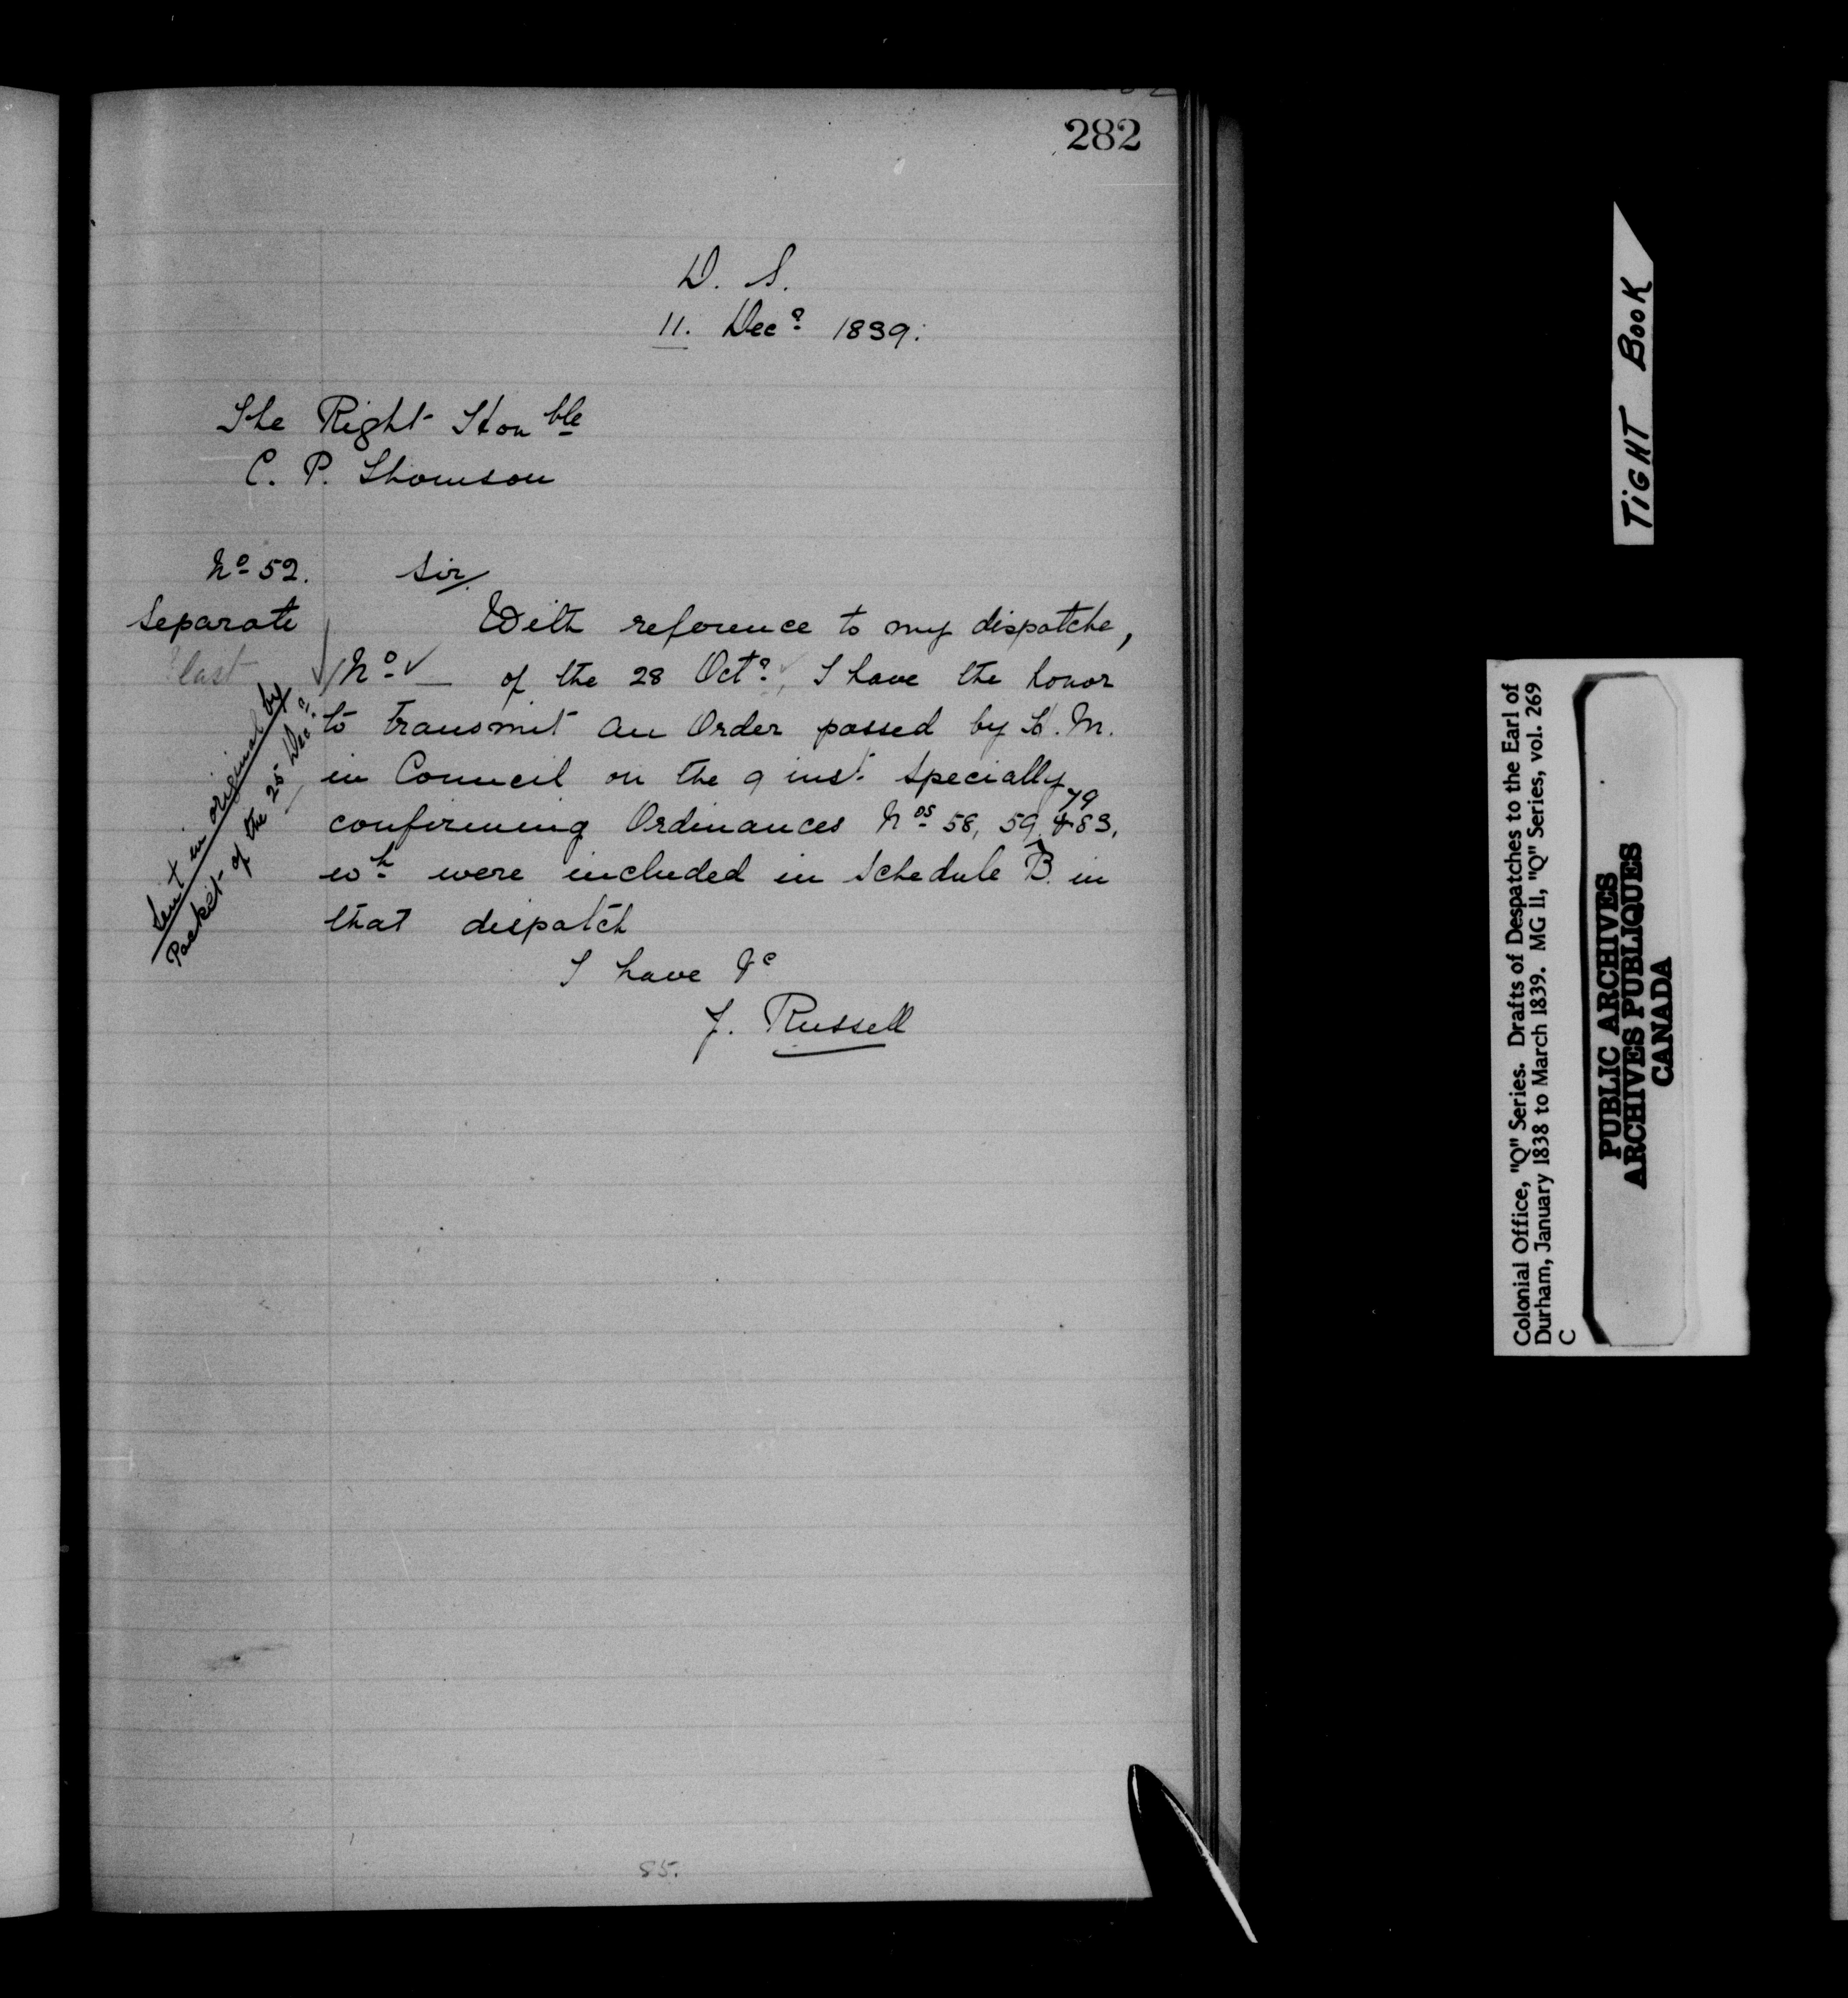 282
D. S.
11. Decr 1839.
The Right Honble
C. P. Thomson
No 52.
Separate
last
Sir,
With reference to my dispatche,
No — of the 28 Octr, I have the honor
to transmit an Order passed by H. M.
in Council on the 9 inst. specially
confirming Ordinances Nos 58, 59, 79 & 83,
wh were included in Schedule B. in
that dispatch
I have &c
J. Russell
Sent in original by
Packet of the 25 Decr
85.
TiGHT BOOK
Colonial Office, "Q" Series. Drafts of Despatches to the Earl of
Durham, January 1838 to March 1839. MG 11, "Q" Series, vol. 269
C
PUBLIC ARCHIVES
ARCHIVES PUBLIQUES
CANADA